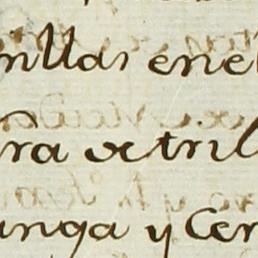 nllas enel
ra de tril
anga y Cer